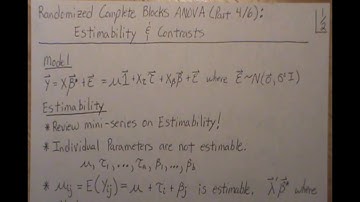 Randomized Complete Blocks ANOVA (Part 4/6):
Estimability & Contrasts
1/2
Model
y⃗ = Xβ⃗* + ε⃗ = μ1⃗ + X_τ τ⃗ + X_β β⃗ + ε⃗ where ε⃗ ~ N(0⃗, σ²I)
Estimability
* Review mini-series on Estimability!
* Individual Parameters are not estimable.
μ, τ₁, ..., τₐ, β₁, ..., β
* μᵢⱼ = E(Yᵢⱼ) = μ + τᵢ + βⱼ is estimable, λ⃗'β⃗* where